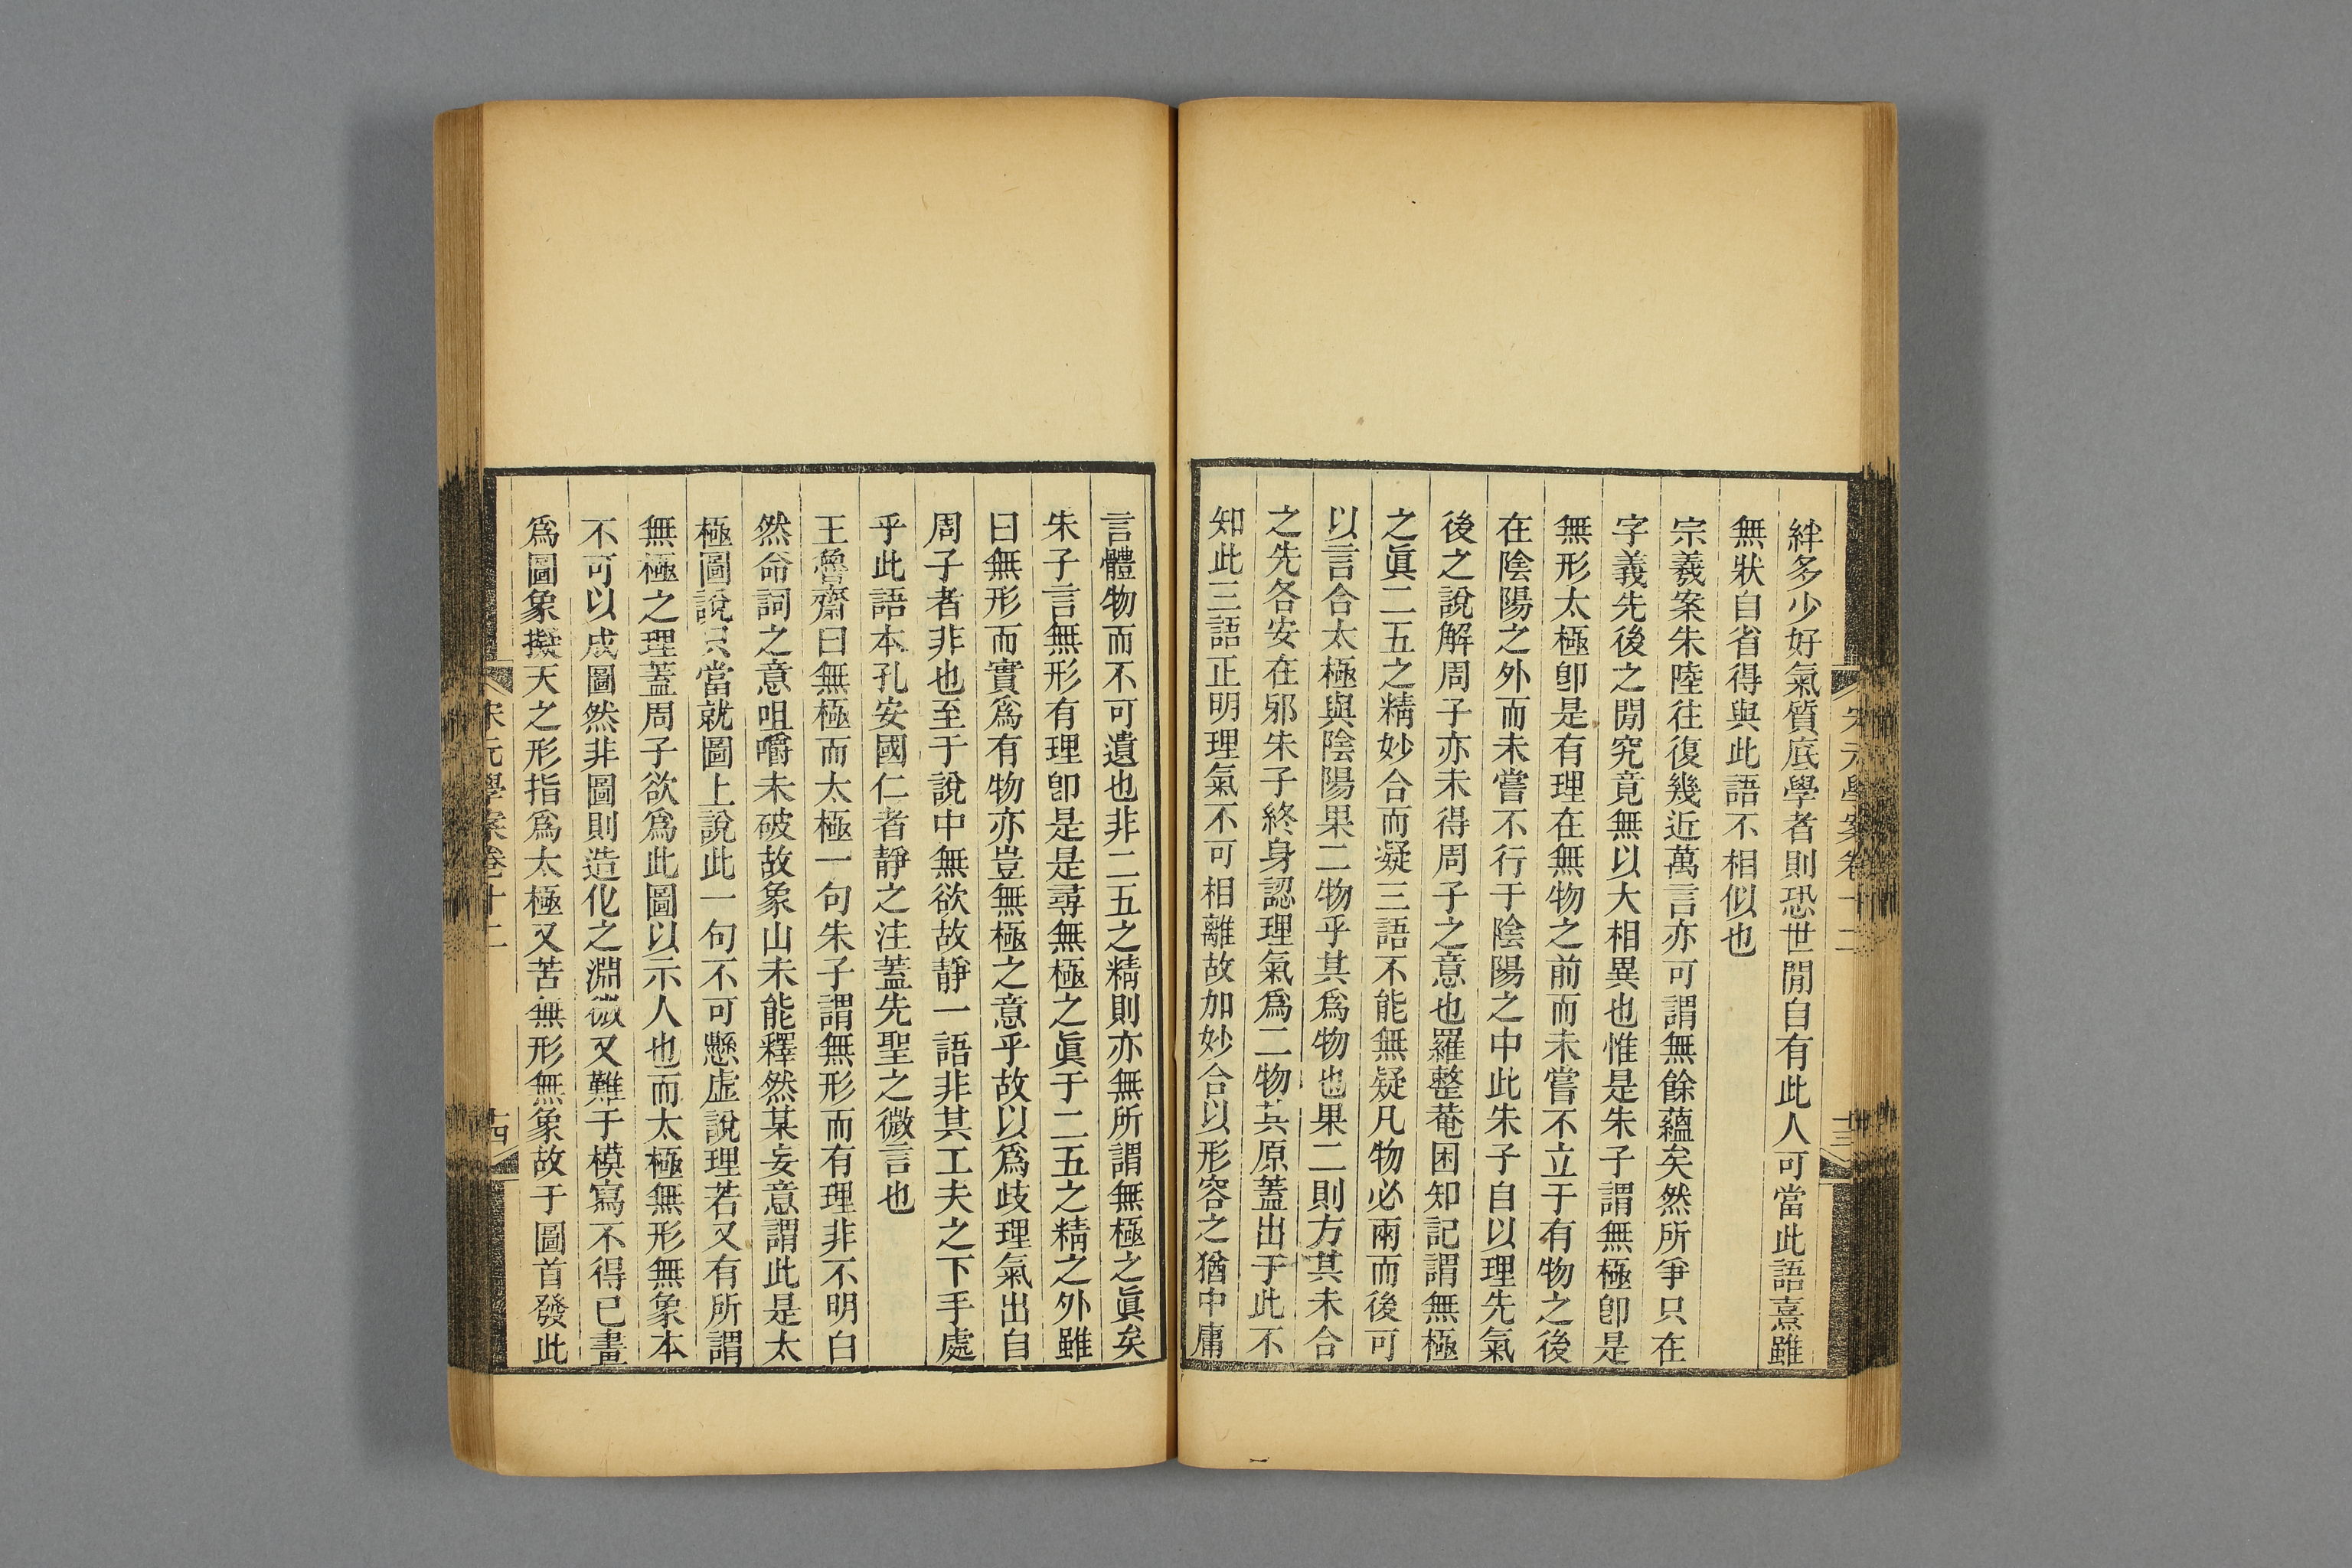 絆多少好氣質底學者則恐世閒自有此人可當此語熹雖
無狀自省得與此語不相似也
宗羲案朱陸往復幾近萬言亦可謂無餘蘊矣然所爭只在
字義先後之閒究竟無以大相異也惟是朱子謂無極卽是
無形太極卽是有理在無物之前而未嘗不立于有物之後
在陰陽之外而未嘗不行于陰陽之中此朱子自以理先氣
後之說解周子亦未得周子之意也羅整菴困知記謂無極
之眞二五之精妙合而凝三語不能無疑凡物必兩而後可
以言合太極與陰陽果二物乎其爲物也果二則方其未合
之先各安在邪朱子終身認理氣爲二物其原蓋出于此不
知此三語正明理氣不可相離故加妙合以形容之猶中庸
宋元學案卷十二
十三
言體物而不可遺也非二五之精則亦無所謂無極之眞矣
朱子言無形有理卽是是尋無極之眞于二五之精之外雖
曰無形而實爲有物亦豈無極之意乎故以爲歧理氣出自
周子者非也至于說中無欲故靜一語非其工夫之下手處
乎此語本孔安國仁者靜之注蓋先聖之微言也
王魯齋曰無極而太極一句朱子謂無形而有理非不明白
然命詞之意咀嚼未破故象山未能釋然某妄意謂此是太
極圖說只當就圖上說此一句不可懸虛說理若又有所謂
無極之理蓋周子欲爲此圖以示人也而太極無形無象本
不可以成圖然非圖則造化之淵微又難于模寫不得已畫
爲圖象擬天之形指爲太極又苦無形無象故于圖首發此
宋元學案卷十二
十四